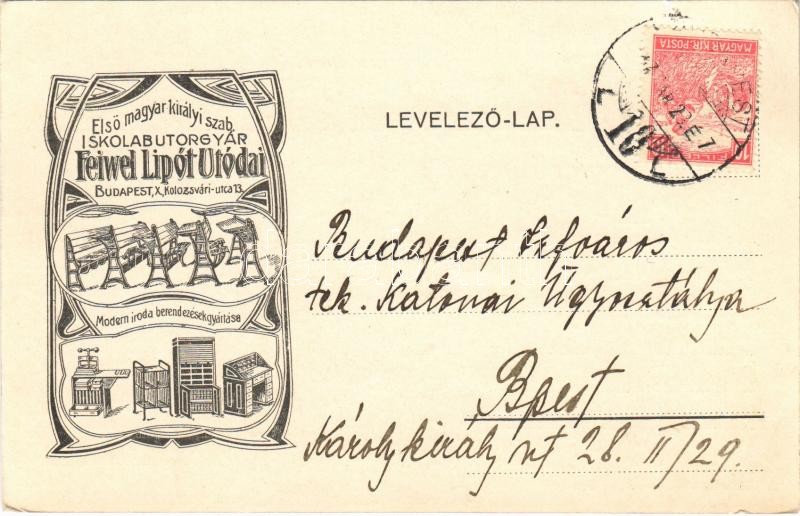 Első magyar királyi szab.
ISKOLABUTORGYÁR
Feiwel Lipót Utódai
BUDAPEST, X, Kolozsvári-utca 13.
Modern iroda berendezések gyártása
LEVELEZŐ-LAP.
MAGYAR KIR. POSTA
Budapest
tek. Katonai Ügyosztálya
Bpest
Károly király út 28. II/29.